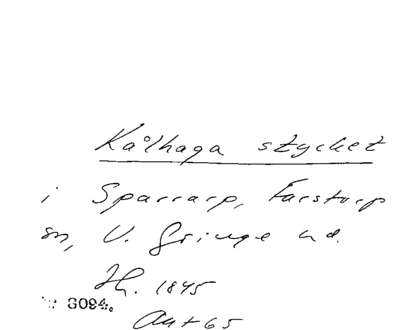 Kålhaga stycket
i Sparrarp, Farstorp
sn, V. Göinge hd.
Jh. 1845
3094.
Ant 65